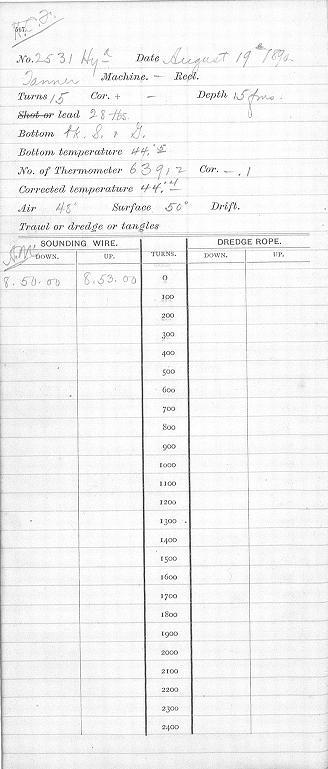 No. 2531 Hyd Date August 19th 1890
Tanner Machine. — Reel.
Turns 15 Cor. + — Depth 15 fms.
Shot or lead 28 lbs.
Bottom bk. S. & G.
Bottom temperature 44.°5
No. of Thermometer 63912 Cor. - .1
Corrected temperature 44.°4
Air 48° Surface 50° Drift.
Trawl or dredge or tangles
SOUNDING WIRE. TURNS. DREDGE ROPE.
A.M. DOWN. UP. DOWN. UP.
8.50.00 8.53.00 0
100
200
300
400
500
600
700
800
900
1000
1100
1200
1300
1400
1500
1600
1700
1800
1900
2000
2100
2200
2300
2400